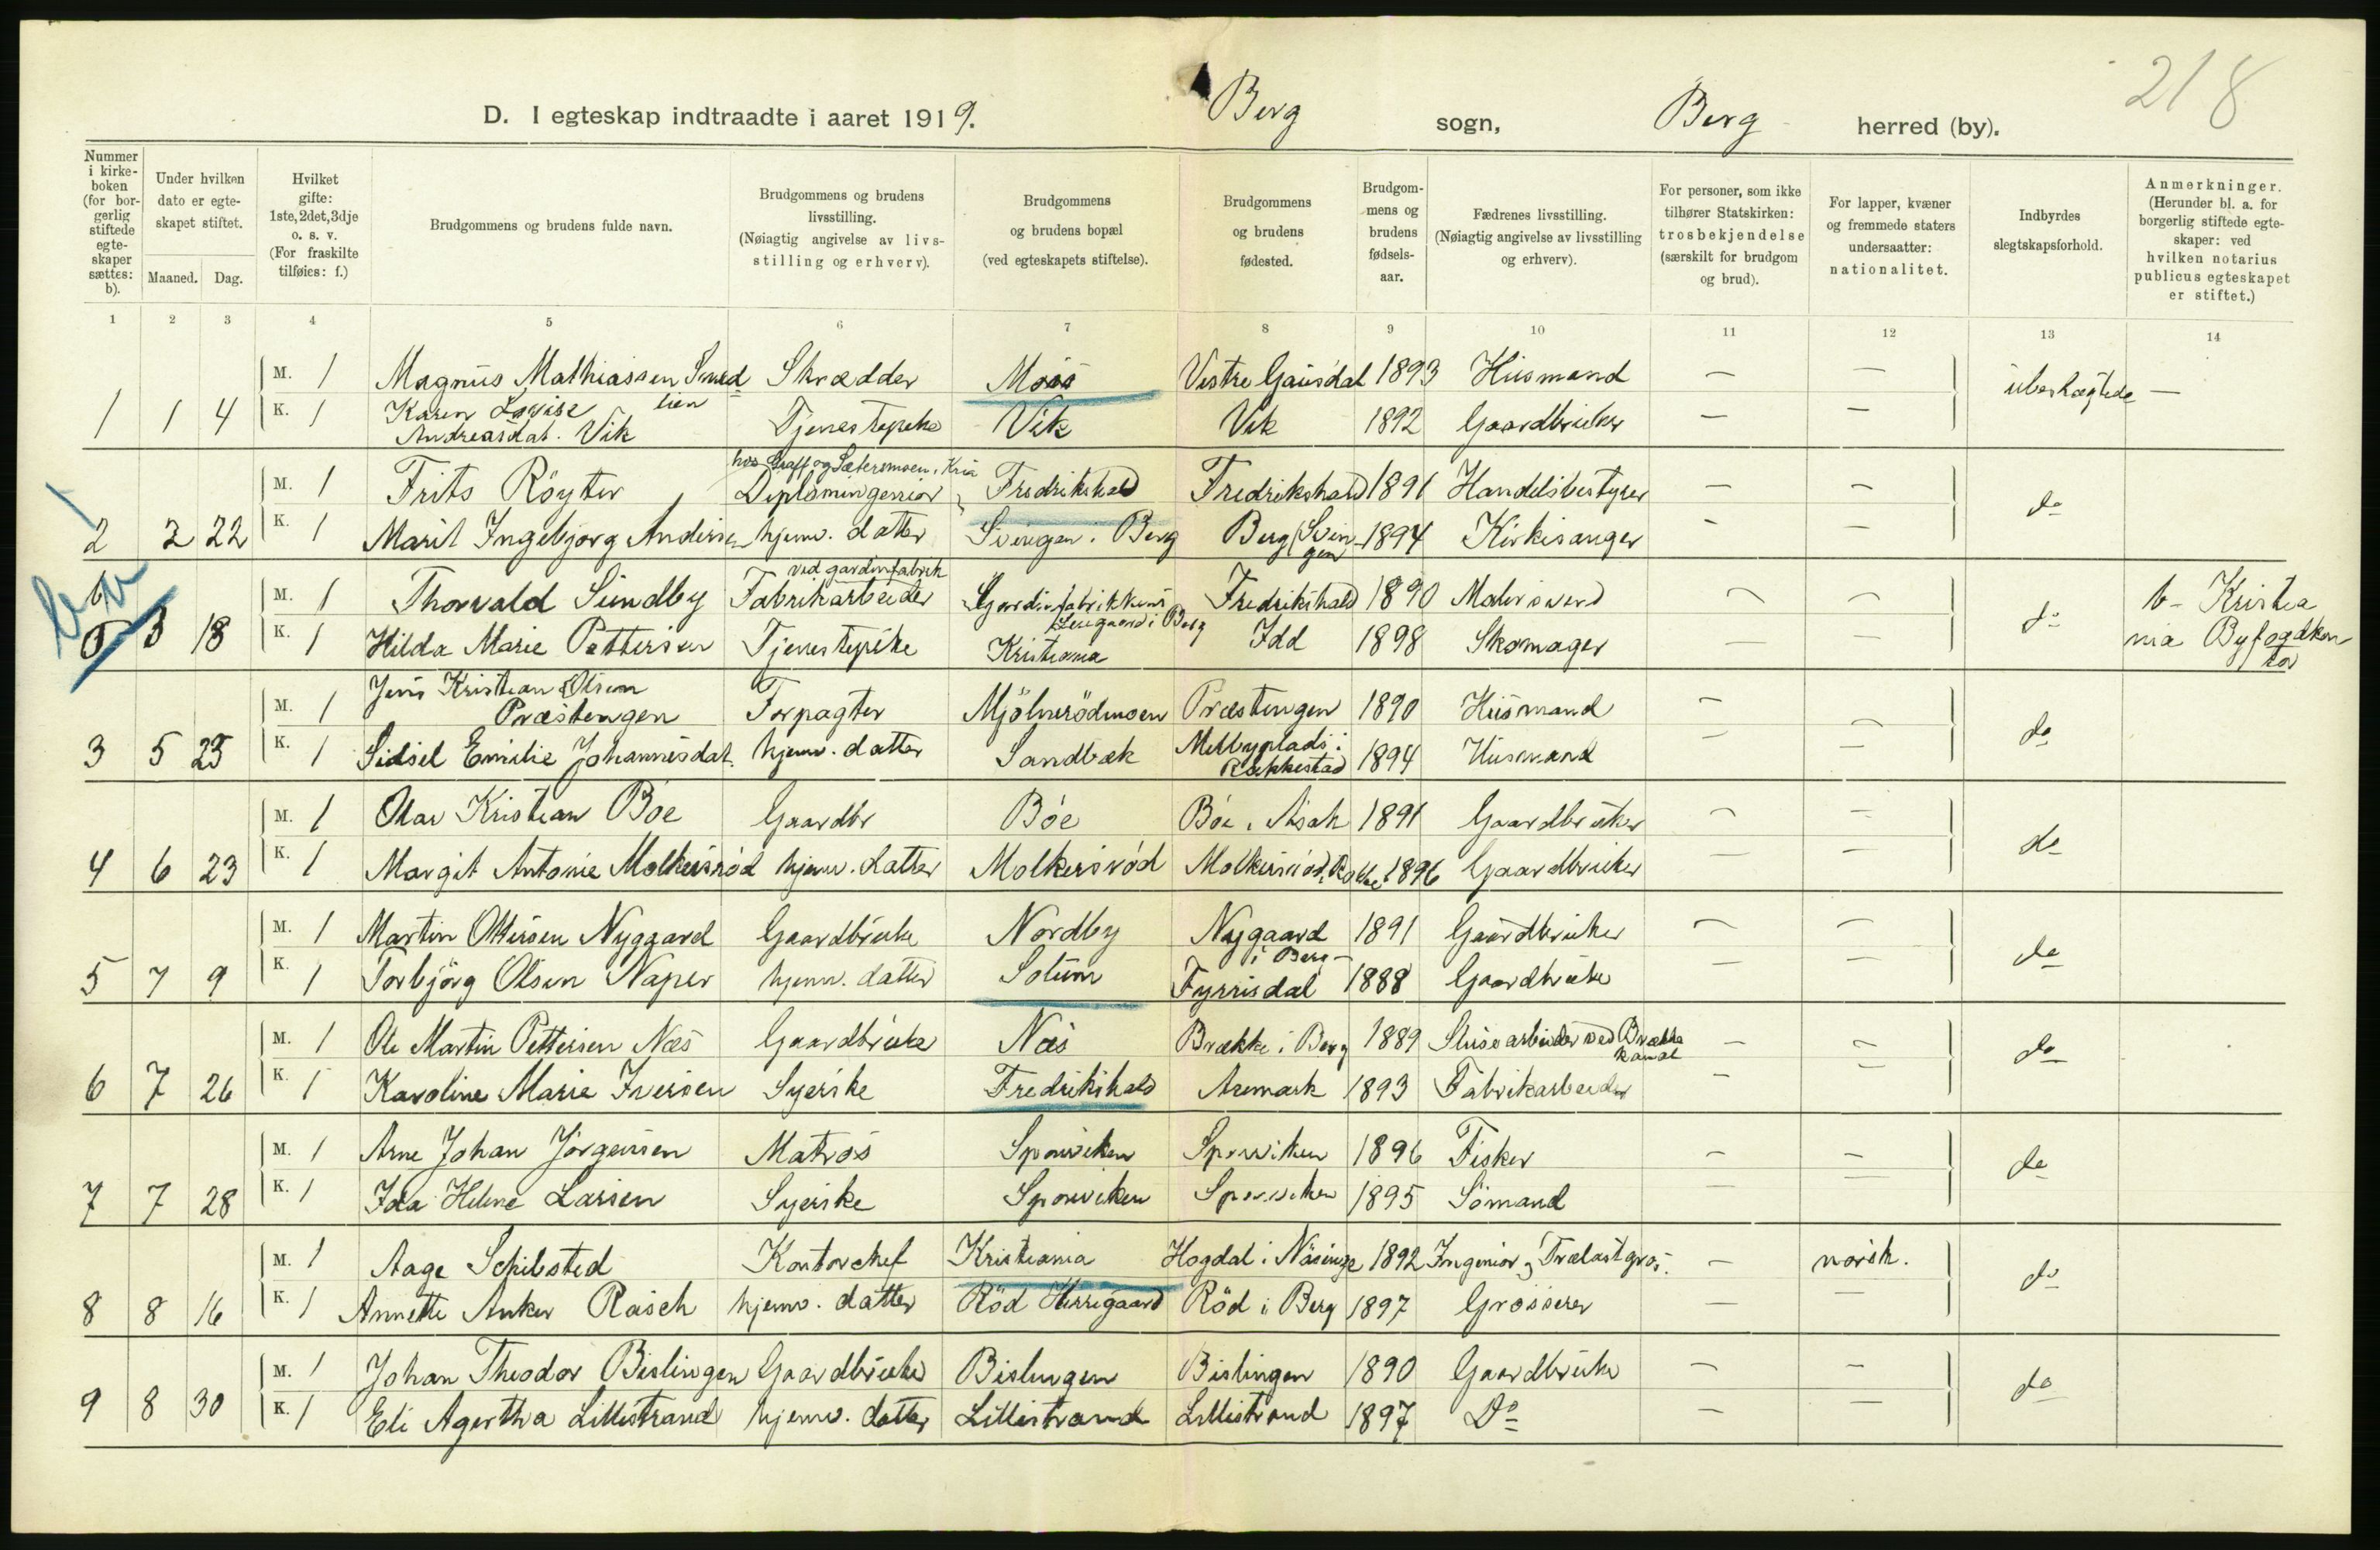 218
D. I egteskap indtraadte i aaret 1919. Berg sogn, Berg herred (by).
Nummer i kirke-boken (for bor-gerlig stiftede egte-skaper sættes: b).
Under hvilken dato er egte-skapet stiftet.
Maaned. Dag.
Hvilket gifte: 1ste, 2det, 3dje o. s. v. (For fraskilte tilføies: f.)
Brudgommens og brudens fulde navn.
Brudgommens og brudens livsstilling. (Nøiagtig angivelse av livs-stilling og erhverv).
Brudgommens og brudens bopæl (ved egteskapets stiftelse).
Brudgommens og brudens fødested.
Brudgom-mens og brudens fødsels-aar.
Fædrenes livsstilling. (Nøiagtig angivelse av livsstilling og erhverv).
For personer, som ikke tilhører Statskirken: trosbekjendelse (særskilt for brudgom og brud).
For lapper, kvæner og fremmede staters undersaatter: nationalitet.
Indbyrdes slegtskapsforhold.
Anmerkninger. (Herunder bl. a. for borgerlig stiftede egte-skaper: ved hvilken notarius publicus egteskapet er stiftet.)
1 2 3 4 5 6 7 8 9 10 11 12 13 14
M. 1 Magnus Mathiassen Smed Skrædder Moss Vestre Gausdal 1893 Husmand — — ubeslægtede —
lien
1 1 4 K. 1 Karen Lovise Andreasdat. Vik Tjenestepike Vik Vik 1892 Gaardbruker — —
hos Graff og Sætersmoen, Kria
M. 1 Frits Röyter Diplomingeniør Fredrikshald Fredrikshald 1891 Handelsbestyrer — — do
2 2 22 K. 1 Marit Ingebjørg Andersen hjemv. datter Svingen i Berg Berg (Svingen 1894 Kirkesanger — —
ved gardinfabrik
M. 1 Thorvald Sundby Fabrikarbeider Gardinfabrikkens i Berg Fredrikshald 1890 Malersvend — — do b - Kristia
3 18 K. 1 Hilda Marie Pettersen Tjenestepike Kristiania Idd 1898 Skomager — — nia Byfogdkon
tor
M. 1 Jens Kristian Olsen Præstengen Forpagter Mjölnerödmoen Præstengen 1890 Husmand — — do
3 5 25 K. 1 Sidsel Emilie Johannesdat. hjemv. datter Sandbæk Melbyplads i Rakkestad 1894 Husmand — —
M. 1 Olav Kristian Böe Gaardbr Böe Böe i Asak 1891 Gaardbruker — — do
4 6 23 K. 1 Margit Antonie Molkersröd hjemv. datter Molkersröd Molkersröd, Rokke 1896 Gaardbruker — —
M. 1 Martin Ottersen Nyggard Gaardbruke Nordby Nygaard i Berg — 1891 Gaardbruker — — do
5 7 9 K. 1 Torbjörg Olsen Naper hjemv. datter Solum Fyrrisdal 1888 Gaardbruke — —
M. 1 Ole Martin Pettersen Næs Gaardbruke Næs Brække i Berg 1889 Slusearbeider ved Brække kanal — — do
6 7 26 K. 1 Karoline Marie Iversen Syerske Fredrikshald Aremark 1893 Fabrikarbeider — —
M. 1 Arne Johan Jörgensen Matros Sponviken Sponviken 1896 Fisker — — do
7 7 28 K. 1 Ida Helene Larsen Syerske Sponviken Sponviken 1895 Sömand — —
M. 1 Aage Schibsted Kontorchef Kristiania Hogdal i Näsinge 1892 Ingeniør og Trælastgros. — norsk. do
8 8 16 K. 1 Annette Anker Rasch hjemv. datter Röd Herregaard Röd i Berg 1897 Grosserer — —
M. 1 Johan Theodor Bislingen Gaardbruke Bislingen Bislingen 1890 Gaardbruke — — do
9 8 30 K. 1 Eli Agertha Lillestrand hjemv. datter Lillestrand Lillestrand 1897 Do — —